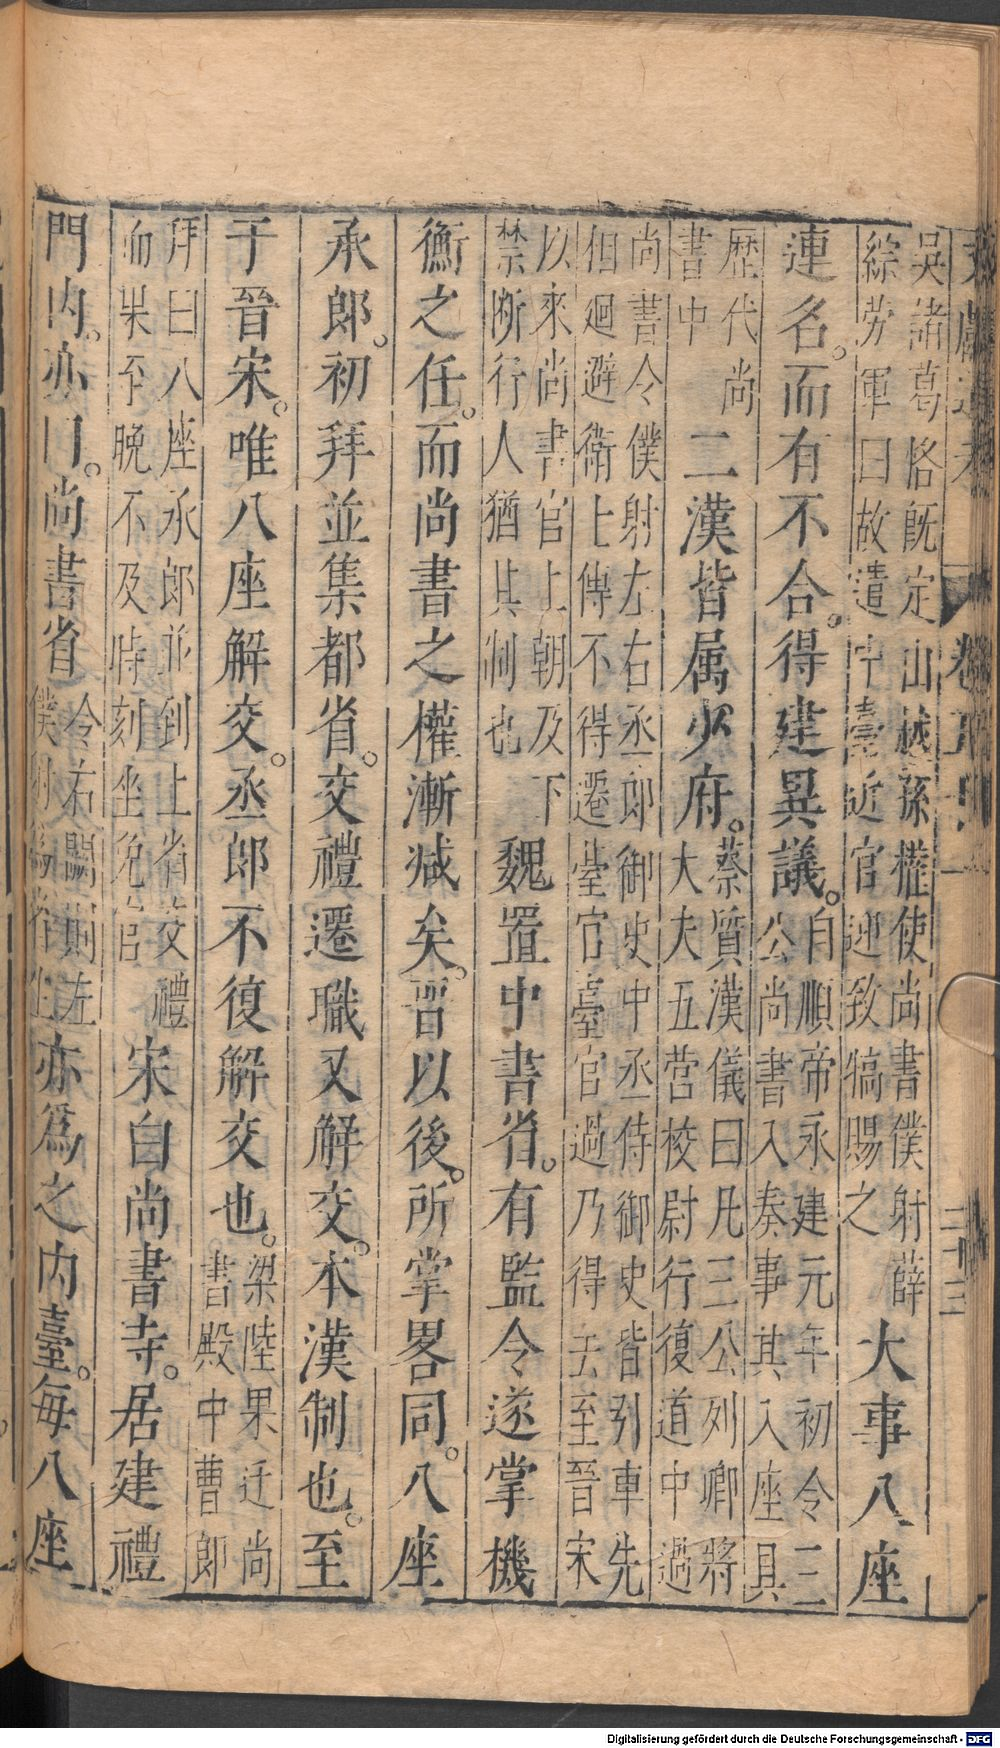 吳諸葛恪既定山越孫權使尚書僕射薛
綜勞軍曰故遣中臺近官迎致犒賜之
大事八座
連名。而有不合。得建異議。
自順帝永建元年初令三
公尚書入奏事其入座具
歷代尚
書中
二漢皆属少府。
蔡質漢儀曰凡三公列卿將
大夫五營校尉行復道中過
尚書令僕射左右丞郎御史中丞侍御史皆引車先
但廻避衛士傳不得遷臺官臺官過乃得去至晉宋
以來尚書官上朝及下
禁断行人猶其制也
魏置中書省。有監令遂掌機
衡之任。而尚書之權漸减矣。晋以後。所掌畧同。八座
承郎。初拜並集都省。交禮遷職又解交。本漢制也。至
于晉宋。唯八座解交。丞郎不復解交也。
梁陸果迁尚
書殿中曹郎
拜日八座承郎並到上省交禮
而果至晚不及時刻坐免官
宋白尚書寺。居建禮
門内。亦曰。尚書省
令右闕則左
僕射爲省主
亦爲之内臺。每八座
文獻通考
二十三
Digitalisierung gefördert durch die Deutsche Forschungsgemeinschaft - DFG